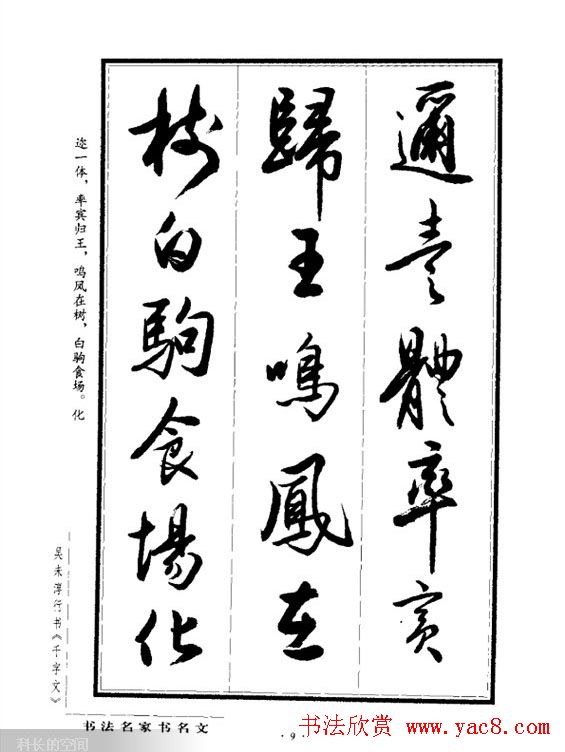 邇壹體率賓
歸王鳴鳳在
樹白駒食場化
迩一体，率宾归王，鸣凤在树，白驹食场。化
吴未淳行书《千字文》
书法名家书名文
·9·
书法欣赏 www.yac8.com
科长的空间